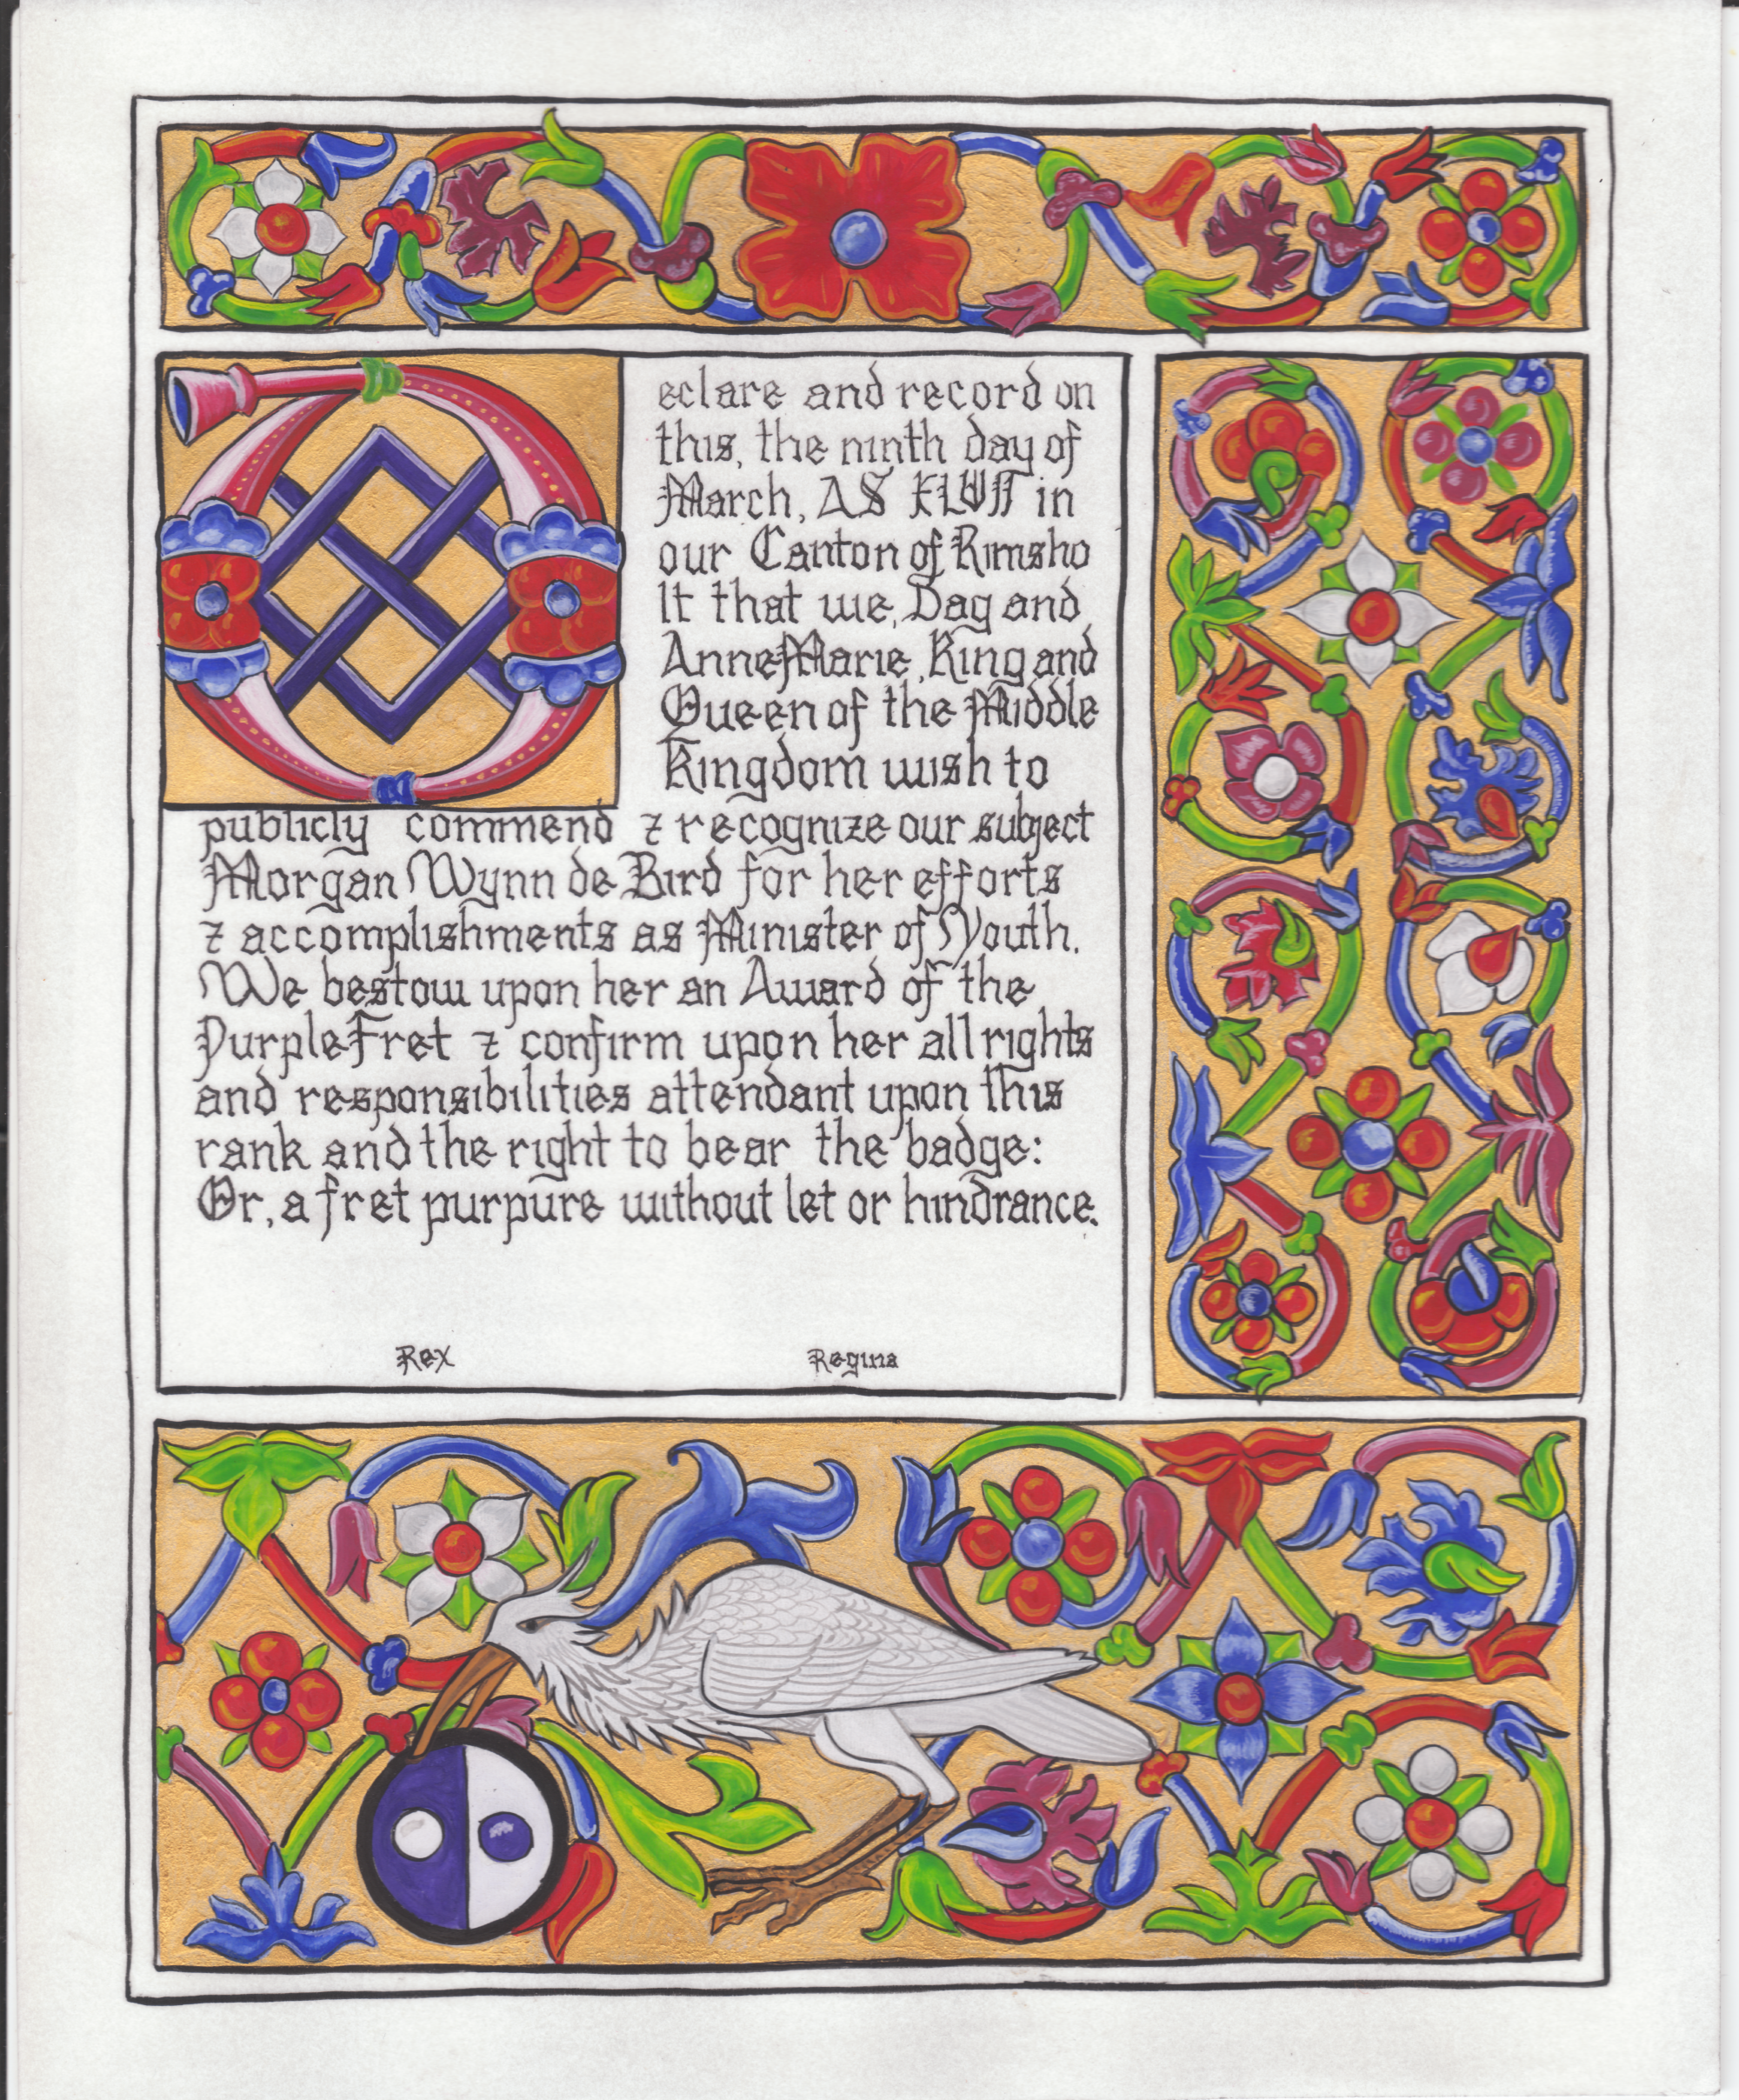 Declare and record on
this, the ninth day of
March, AS XLVII in
our Canton of Rimsho
lt that we, Dag and
AnneMarie, King and
Queen of the Middle
Kingdom wish to
publicly commend ⁊ recognize our subject
Morgan Wynn de Bird for her efforts
⁊ accomplishments as Minister of Youth.
We bestow upon her an Award of the
Purple Fret ⁊ confirm upon her all rights
and responsibilities attendant upon this
rank and the right to bear the badge:
Or, a fret purpure without let or hindrance.
Rex Regina